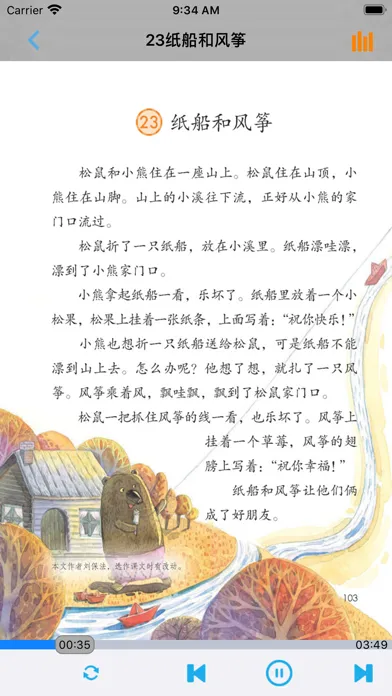 Carrier 9:34 AM
23纸船和风筝
23 纸船和风筝
松鼠和小熊住在一座山上。松鼠住在山顶，小
熊住在山脚。山上的小溪往下流，正好从小熊的家
门口流过。
松鼠折了一只纸船，放在小溪里。纸船漂哇漂，
漂到了小熊家门口。
小熊拿起纸船一看，乐坏了。纸船里放着一个小
松果，松果上挂着一张纸条，上面写着：“祝你快乐！”
小熊也想折一只纸船送给松鼠，可是纸船不能
漂到山上去。怎么办呢？他想了想，就扎了一只风
筝。风筝乘着风，飘哇飘，飘到了松鼠家门口。
松鼠一把抓住风筝的线一看，也乐坏了。风筝上
挂着一个草莓，风筝的翅
膀上写着：“祝你幸福！”
纸船和风筝让他们俩
成了好朋友。
本文作者刘保法，选作课文时有改动。
103
00:35
03:49